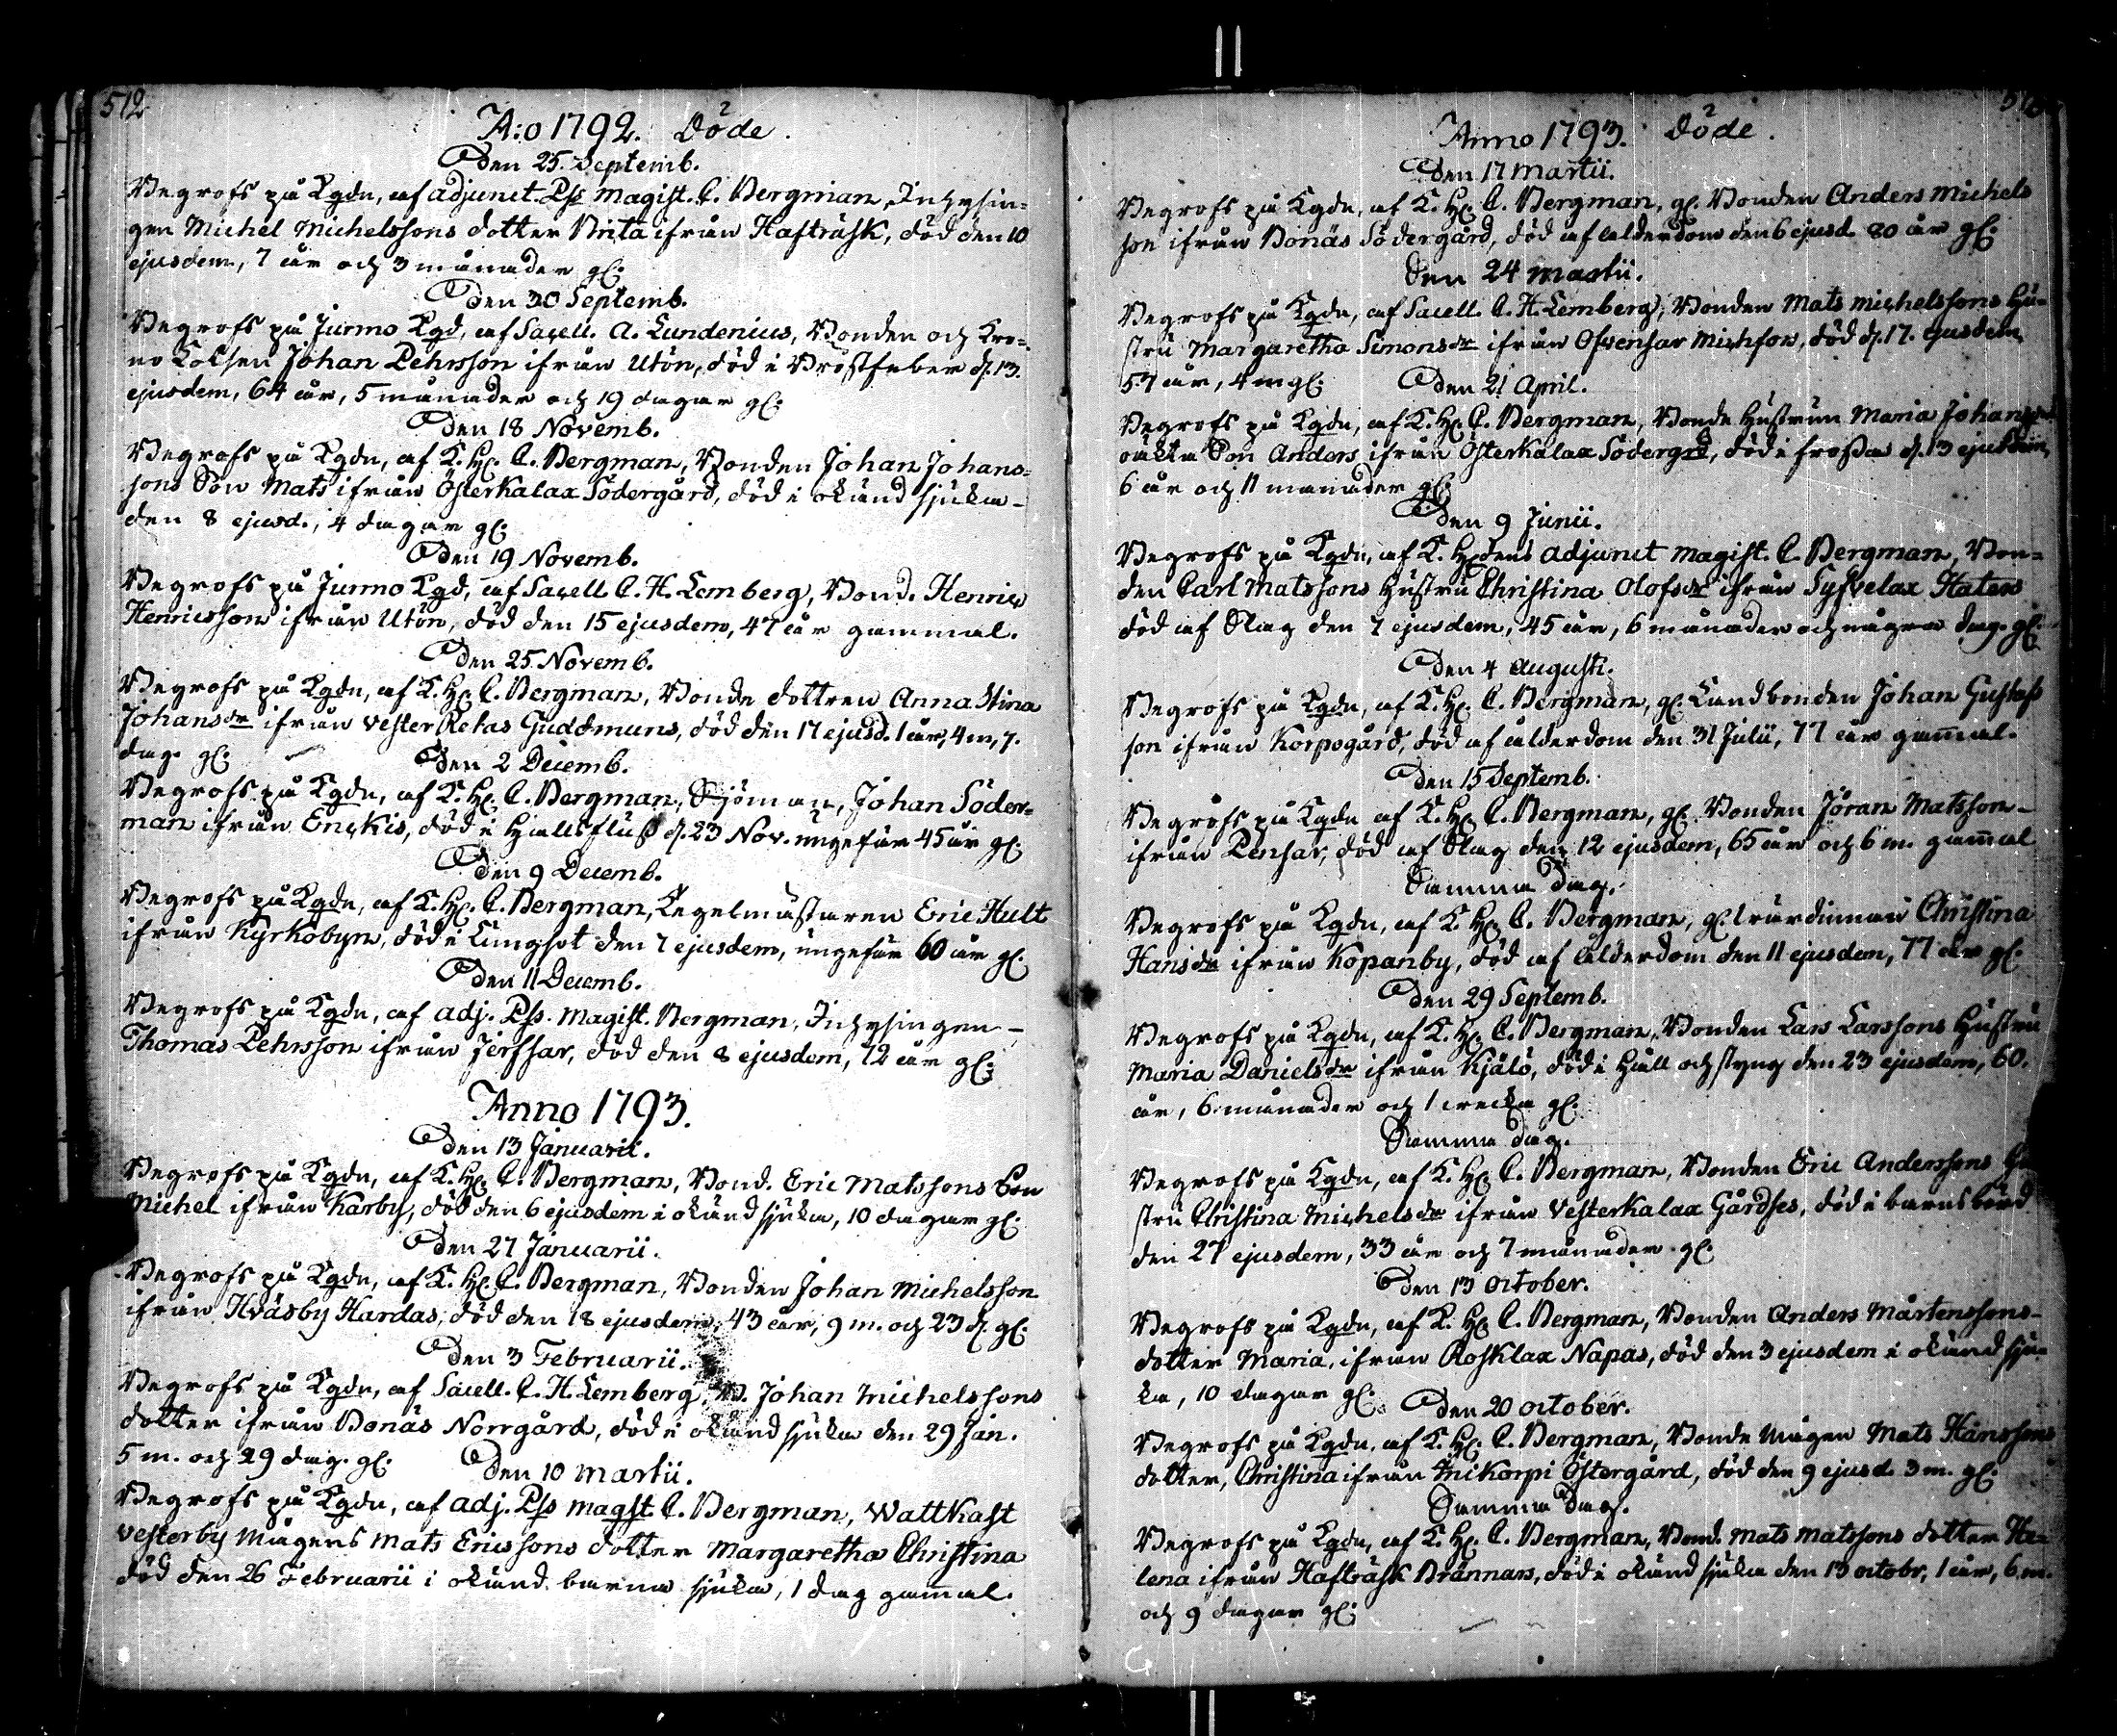 512
A:o 1792. Döde.
den 25. Septemb.
Begrofs på Kgdn, af adjunct. Pss Magist. C. Bergman, Inhysin=
gen Michel Michelssons dotter Brita ifrån Hafträsk, död den 10
ejusdem, 7 år och 3 månader gl:
den 30 Septemb.
Begrofs på Jurmo Kgd, af Sacell. A. Lundenius, Bonden och Kro=
no Lotsen Johan Pehrsson ifrån Utön, död i Bröstfeber d. 13.
ejusdem, 64 år, 5 månader och 19 dagar gl:
den 18 Novemb.
Begrofs på Kgdn, af K. H. C. Bergman, Bonden Johan Johans=
sons Son Mats ifrån Österkalax Södergård, död i okänd sjuka
den 8 ejusd., 4 dagar gl:
den 19 Novemb.
Begrofs på Jurmo Kgd, af Sacell. C. H. Lemberg, Bond. Henric
Henricsson ifrån Utön, död den 15 ejusdem, 47 år gammal.
den 25 Novemb.
Begrofs på Kgdn, af K. H. C. Bergman, Bonde dottren Anna Stina
Johansdr ifrån Vester Retas Guddmuns, död den 17 ejusd. 1 år, 4 m, 7.
dag. gl:
den 2 Decemb.
Begrofs på Kgdn, af K. H. C. Bergman, Sjöman, Johan Söder=
man ifrån Enskis, död i Hallsfluss d. 23 Nov. ungefär 45 år gl:
den 9 Decemb.
Begrofs på Kgdn, af K. H. C. Bergman, Tegelmästaren Eric Hult
ifrån Kyrkobyn, död i Lungsot den 7 ejusdem, ungefär 60 år gl:
den 11 Decemb.
Begrofs på Kgdn, af adj. Pss. Magist. Bergman, Inhysingen
Thomas Pehrsson ifrån Jerfsar, död den 8 ejusdem, 72 år gl:
Anno 1793.
den 13 Januarii.
Begrofs på Kgdn, af K. H. C. Bergman, Bond. Eric Matssons Son
Michel ifrån Karby, död den 6 ejusdem i okänd sjuka, 10 dagar gl:
den 27 Januarii.
Begrofs på Kgdn, af K. H. C. Bergman, Bonden Johan Michelsson
ifrån Hväsby Hardas, död den 18 ejusdem, 43 år, 9 m. och 23 d. gl:
den 3 Februarii.
Begrofs på Kgdn, af Sacell. C. H. Lemberg, B. Johan Michelssons
dotter ifrån Bonäs Norrgård, död i okänd sjuka den 29 Jan.
5 m. och 29 dag. gl: den 10 Martii.
Begrofs på Kgdn, af adj. Pss Magst. C. Bergman, Wattkast
Vesterby Mågens Mats Ericssons dotter Margaretha Christina
död den 26 Februarii i okänd barna sjuka, 1 dag gammal.
Anno 1793. Döde.
den 17 Martii.
Begrofs på Kgdn, af K. H. C. Bergman, gl. Bonden Anders Michels
son ifrån Bonäs Södergård, död af ålderdom den 6 ejusd. 80 år gl:
den 24 Martii.
Begrofs på Kgdn, af Sacell. C. H. Lemberg, Bonden Mats Michelssons Hu=
stru Margaretha Simonsdr ifrån Ofvensar Mickfors, död d. 17. ejusdem
57 år, 4 m gl: den 21 April.
Begrofs på Kgdn, af K. H. C. Bergman, Bonde Hustrun Maria
oäkta Son Anders ifrån Österkalax Södergrd, död i frossa d. 13 ejusdem,
6 år och 11 månader gl:
den 9 Junii.
Begrofs på Kgdn, af K. Hdens adjunct Magist. C. Bergman, Bon=
den Carl Matssons Hustru Christina Olofsdr ifrån Syfvelax Katers
död af Slag den 7 ejusdem, 45 år, 6 månader och några dag. gl:
den 4 Augusti.
Begrofs på Kgdn, af K. H. C. Bergman, gl. Landbonden Johan Gustafs
son ifrån Korpogård, död af ålderdom den 31 Julii, 77 år gammal.
den 15 Septemb.
Begrofs på Kgdn af K. H. C. Bergman, gl. Bonden Jöran Matsson
ifrån Pensar, död af Slag den 12 ejusdem, 65 år och 6 m. gammal
Samma dag.
Begrofs på Kgdn, af K. H. C. Bergman, gl. Christina
Hansdr ifrån Kopanby, död af ålderdom den 11 ejusdem, 77 år gl:
den 29 Septemb.
Begrofs på Kgdn, af K. H. C. Bergman, Bonden Lars Larssons Hustru
Maria Danielsdr ifrån Kjälö, död i Håll och styng den 23 ejusdem, 60.
år, 6 månader och 1 wecka gl:
Samma dag.
Begrofs på Kgdn, af K. H. C. Bergman, Bonden Eric Anderssons Hu
stru Christina Michelsdr ifrån Vesterkalax Gårdses, död i barnsbörd
den 27 ejusdem, 33 år och 7 månader gl:
den 13 October.
Begrofs på Kgdn, af K. H. C. Bergman, Bonden Anders Mårtenssons
dotter Maria, ifrån Rosklax Napas, död den 3 ejusdem i okänd sju=
ka, 10 dagar gl: den 20 October.
Begrofs på Kgdn, af K. H. C. Bergman, Bonde Mågen Mats Hanssons
dotter, Christina ifrån Östergård, död den 9 ejusd. 3 m. gl:
Samma dag.
Begrofs på Kgdn, af K. H. C. Bergman, Bond. Mats Matssons dotter He=
lena ifrån Hafträsk Brännars, död i okänd sjuka den 13 octobr, 1 år, 6 m.
och 9 dagar gl: